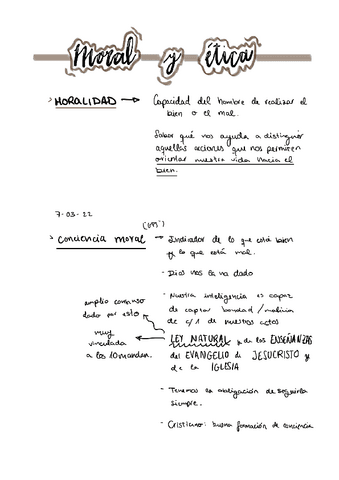 Moral y ética
> MORALIDAD → Capacidad del hombre de realizar el
bien o el mal.
Saber qué nos ayuda a distinguir
aquellas acciones que nos permiten
orientar nuestra vida hacia el
bien.
7-03-22
> Conciencia moral → Indicador de lo que está bien
y lo que está mal.
- Dios nos la ha dado
- Nuestra inteligencia es capaz
de captar bondad/malicia
de c/1 de nuestros actos
amplio consenso
dado por esto
muy
vinculada
a los 10 mandam.
LEY NATURAL y de los ENSEÑANZAS
del EVANGELIO de JESUCRISTO y
de la IGLESIA
- Tenemos la obligación de seguirla
siempre.
- Cristiano: buena formación de conciencia